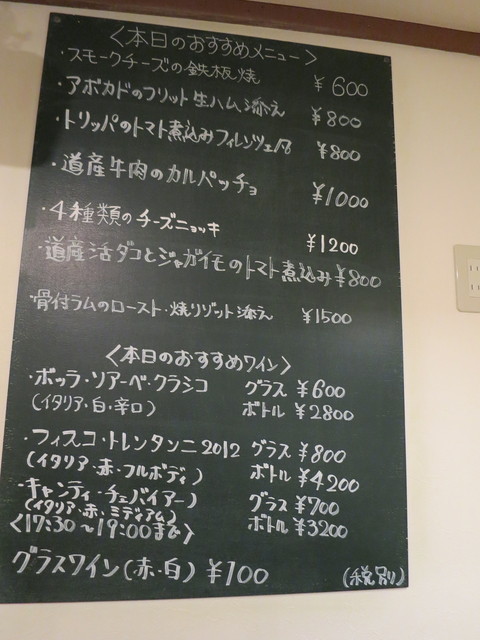 〈本日のおすすめメニュー〉
・スモークチーズの鉄板焼 ¥600
・アボカドのフリット生ハム添え ¥800
・トリッパのトマト煮込みフィレンツェ風 ¥800
・道産牛肉のカルパッチョ ¥1000
・4種類のチーズニョッキ ¥1200
・道産活ダコとジャガイモのトマト煮込み ¥800
・骨付ラムのロースト・焼リゾット添え ¥1500
〈本日のおすすめワイン〉
・ボッラ・ソアーベ・クラシコ グラス ¥600
(イタリア・白・辛口) ボトル ¥2800
・フィスコ・トレンタンニ2012 グラス ¥800
(イタリア・赤・フルボディ) ボトル ¥4200
・キャンティ・チェバイアー) グラス ¥700
(イタリア・赤・ミディアム) ボトル ¥3200
〈17:30〜19:00まで〉
グラスワイン(赤・白) ¥100
(税別)